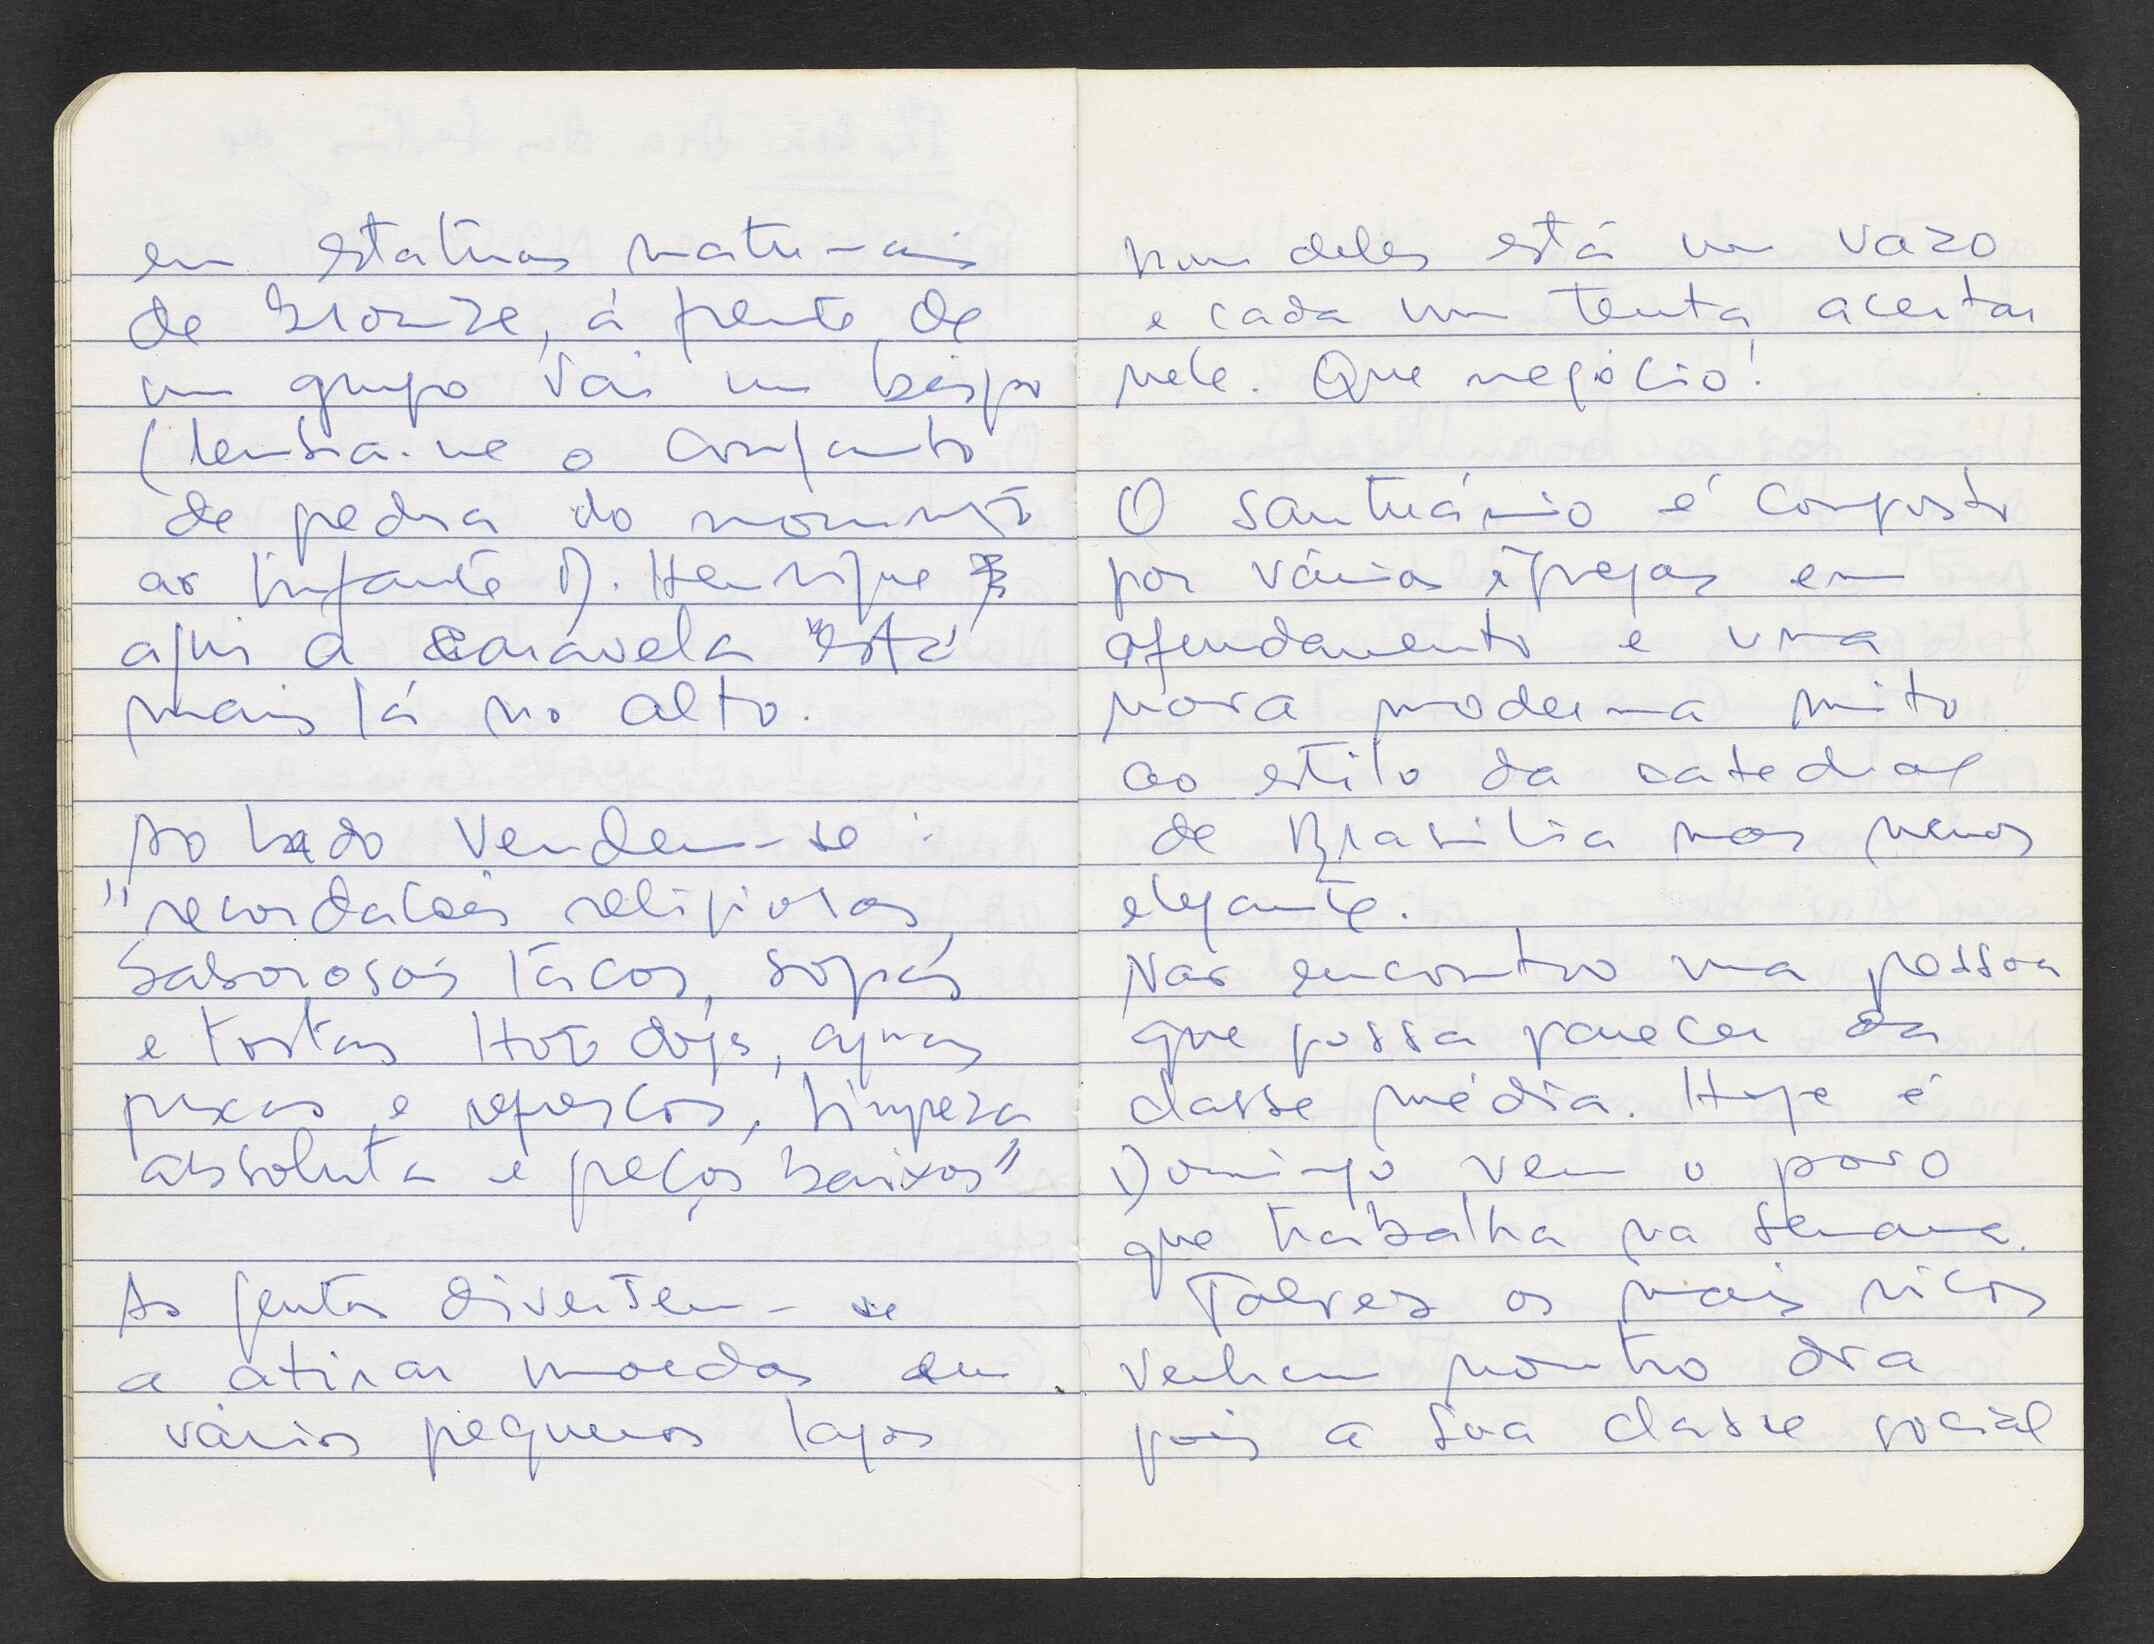 em estatuas naturais
de bronze, á frente de
um grupo vai um bispo
(lembra-me o conjunto
de pedra do monumtº
ao Infante D. Henrique
aqui a caravela "está
mais lá no alto.
Ao lado vendem-se:
"recordações religiosas,
saborosos tácos, sopas
e tostas Hot dogs, aguas
puras e refrescos, limpeza
absoluta e preços baixos"
As gentes divertem-se
a atirar moedas em
vários pequenos lagos
num deles está um vazo
e cada um tenta acertar
nele. Que negócio!
O santuário é composto
por várias igrejas em
afundamento e uma
nova moderna muito
ao estilo da catedral
de Brasilia mas menos
elegante.
Não encontro uma pessoa
que possa parecer da
classe média. Hoje é
Domingo vem o povo
que trabalha na semana.
Talvez os mais ricos
venham noutro dia
pois a sua classe social